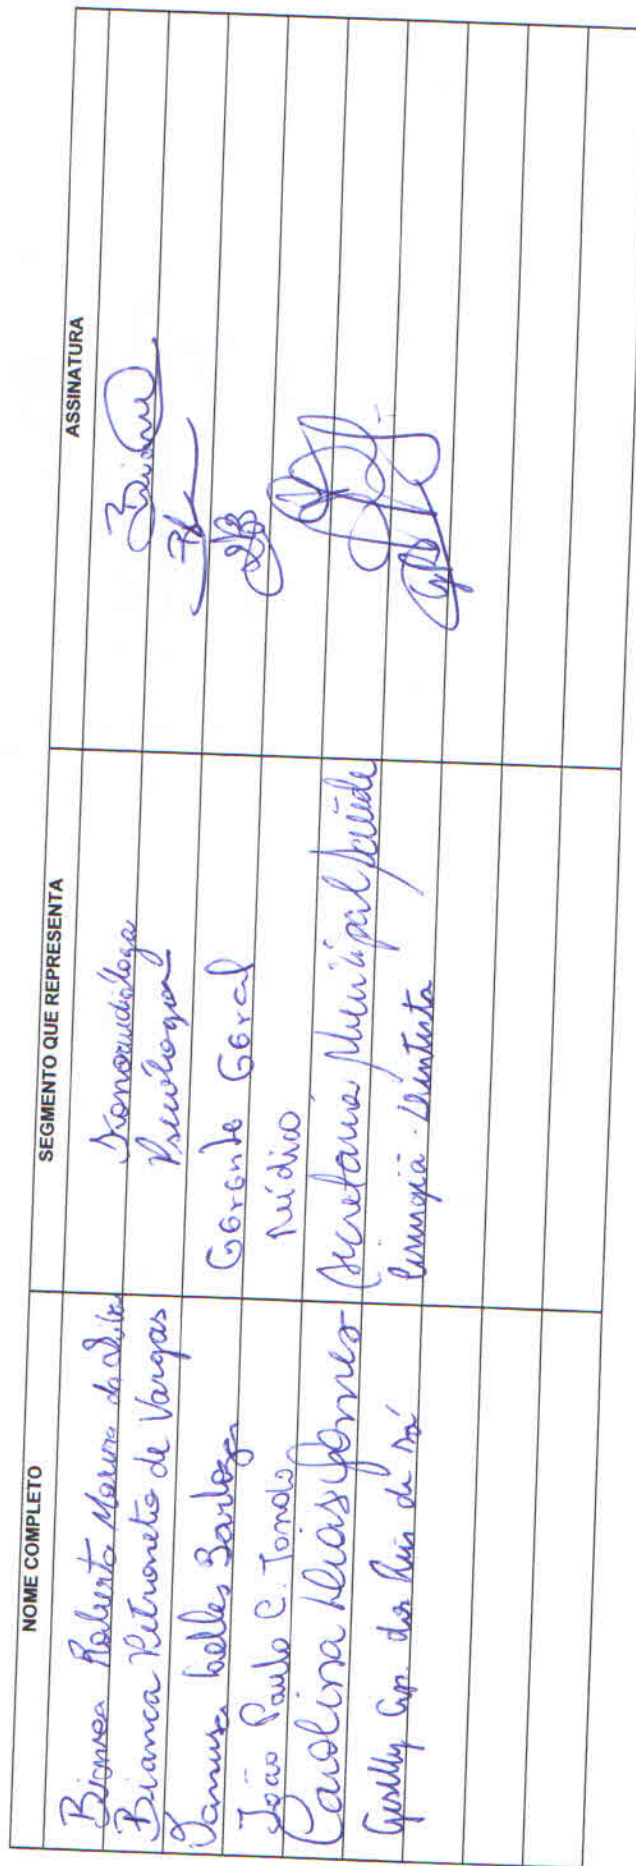 NOME COMPLETO SEGMENTO QUE REPRESENTA ASSINATURA
Bianca Roberta Moreira da Silva Fonoaudióloga
Bianca Petroneto de Vargas Psicóloga
Telles Barboza Gerente Geral
João Paulo C. Médico
Carolina Dias Gomes Secretaria Municipal Saúde
Geielly Ap. dos Reis de Sá Cirurgiã-Dentista